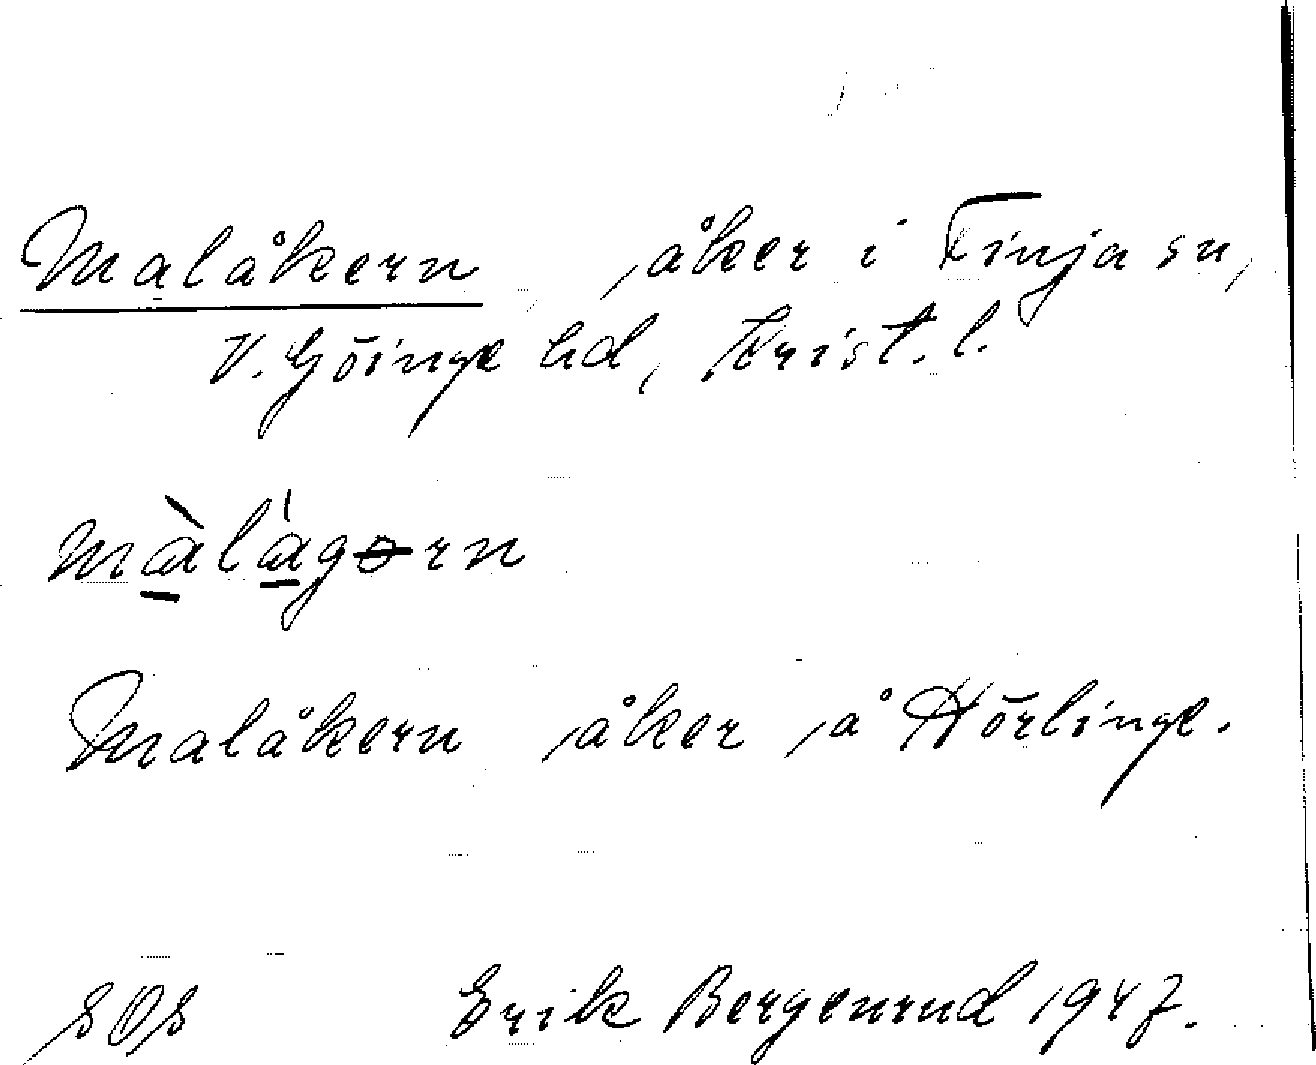 Malåkern, åker i Finja sn,
V. Göinge hd, Krist. l.
màlágɵrn
Malåkern åker å Hörlinge.
SOS Erik Bergenrud 1947.